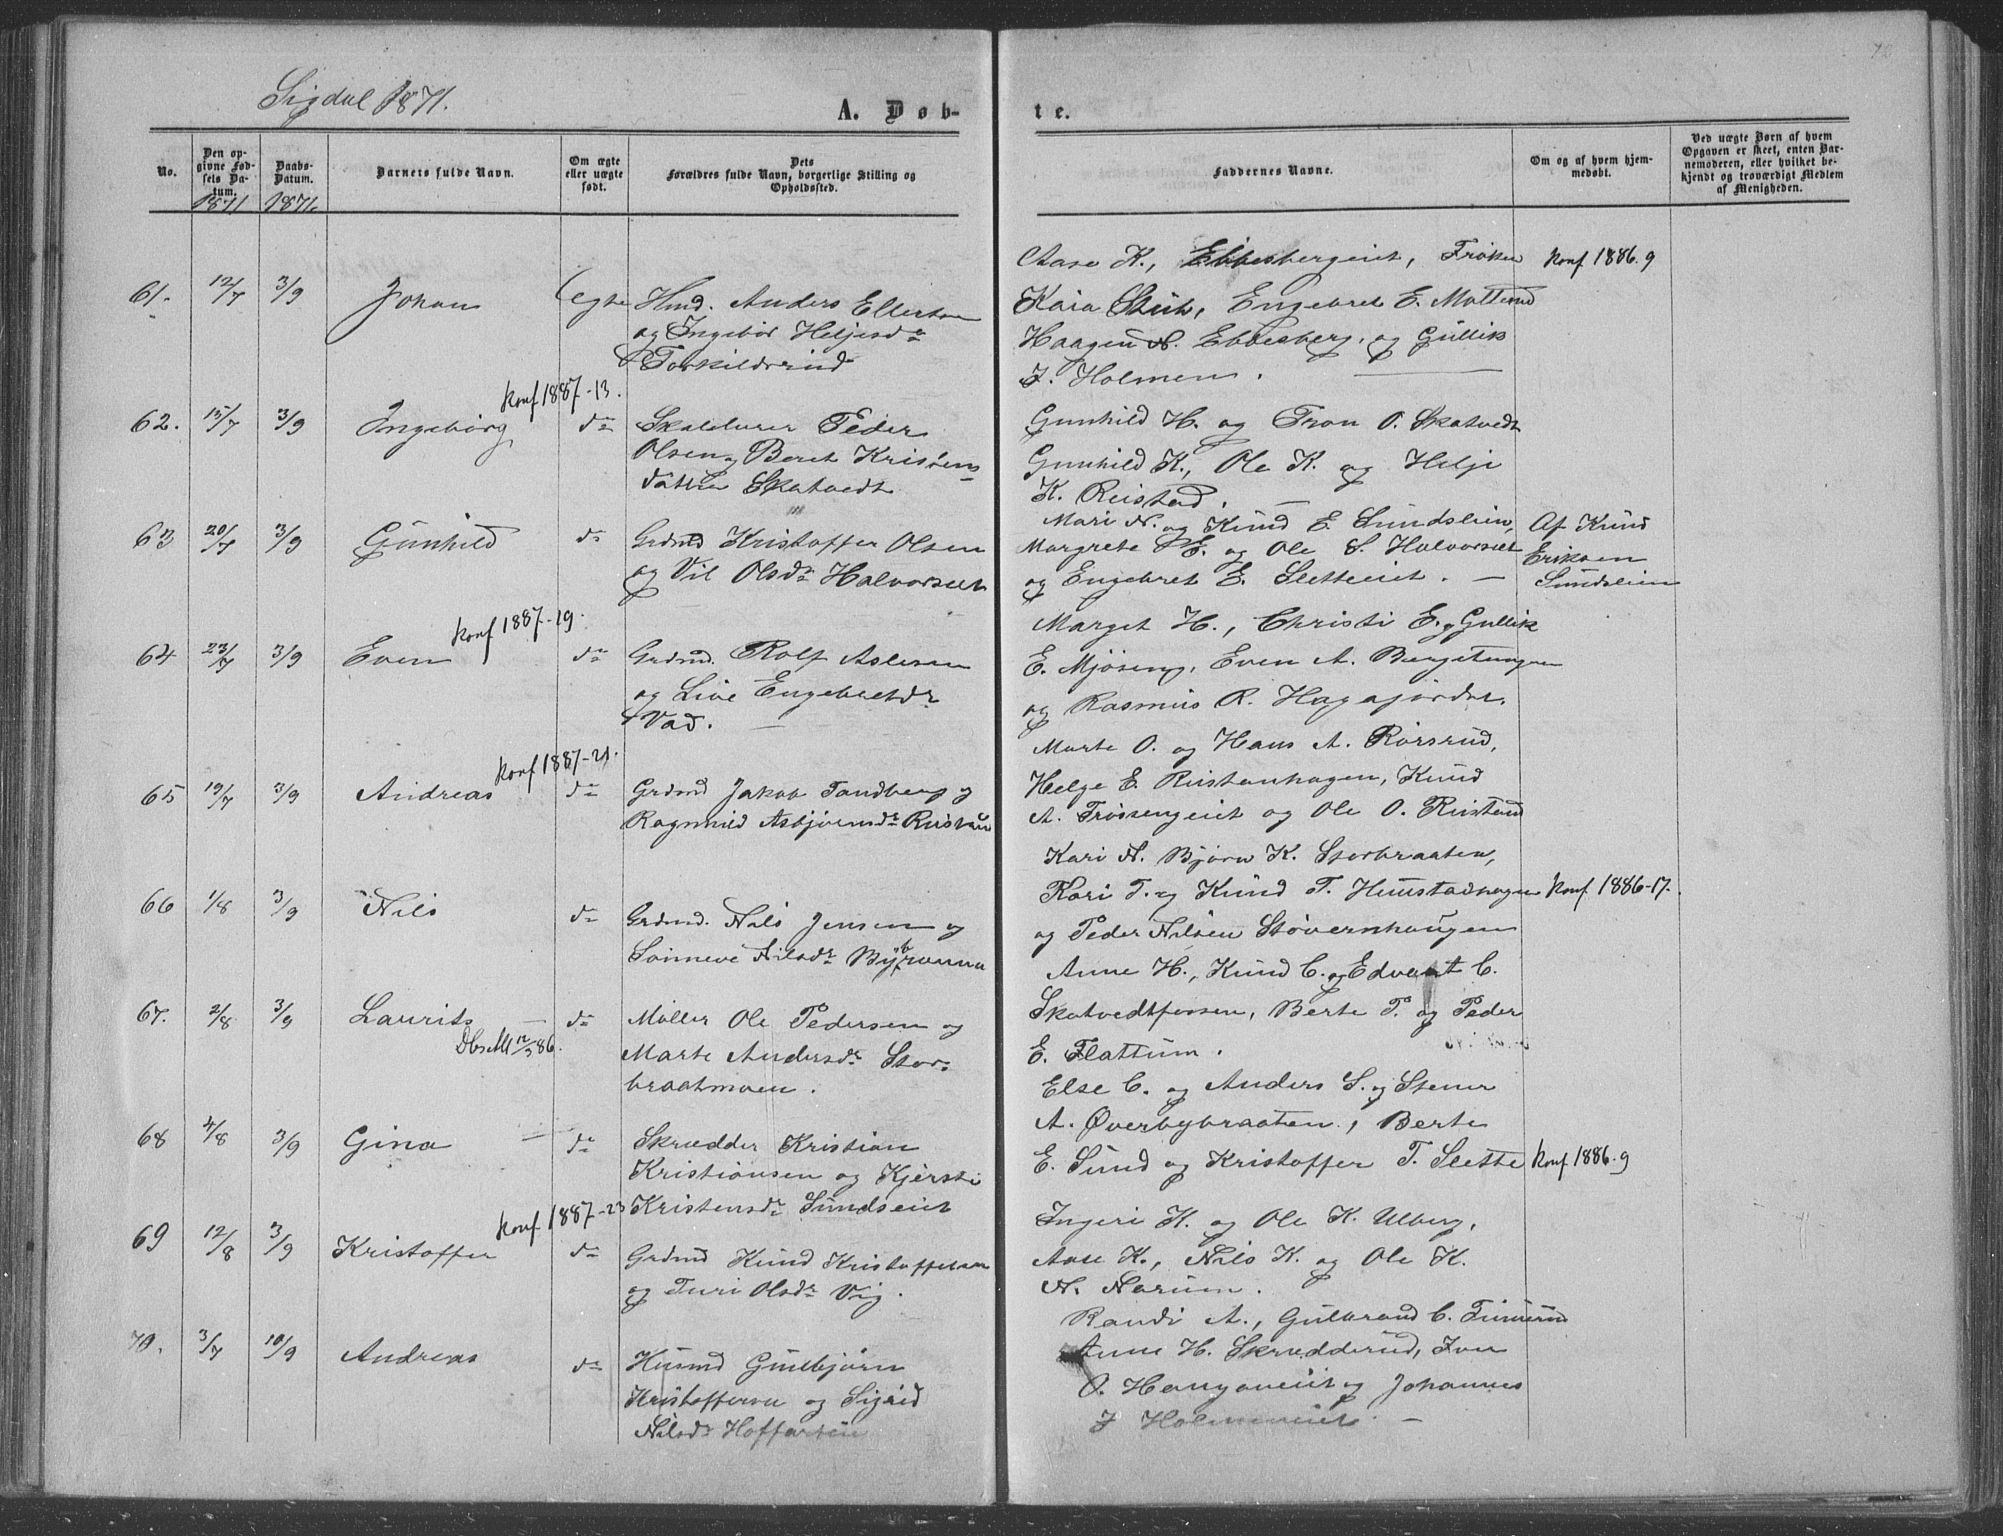 Sigdal 1871.
A. Døb-
te.
No.
Den opgivne Fødsels Datum.
1871
Daabs-Datum.
1871.
Barnets fulde Navn.
Om ægte eller uægte født.
Dets Forældres fulde Navn, borgerlige Stilling og Opholdssted.
Faddernes Navne.
Om og af hvem hjemmedøbt.
Ved uægte Børn af hvem Opgaven er skeet, enten Barnemoderen, eller hvilket bekjendt og troværdigt Medlem af Menigheden.
61. 12/7 3/9 Johan Ægte Hmd. Anders Ellertsen
og Ingebør Heljesdr
Torkildsrud
Aase K., Ebbesbergeiet, Frøken
Kaia Stub, Engebret E. Mattrud
Haagen N. Ebbesberg, og Gullik
J. Holmen.
konf 1886.9
62. 15/7 3/9 Ingebørg do Skolelærer Peder
Olsen og Beret Kristens
datter Skatvedt
konf 1887-13.
Gunhild H. og Tron O. Skatvedt
Gunhild K., Ole K. og Helje
K. Reistad.
63 20/7 3/9 Gunhild do Grdmd Kristoffer Olsen
og Vil Olsdr Halvorseth
Mari N. og Knud E. Sundsleien,
Margrete E. og Ole S. Halvorseth
og Engebret E. Setteeiet.
Af Knud
Eriksen
Sundsleien
64 23/7 3/9 Even do Grdmd. Rolf Aslesen
og Live Engebretdr
Vad.
konf 1887-19.
Marget H., Christi E. og Gullik
E. Mjøseng, Even A. Bergstengen
og Rasmus R. Hagajordet.
65 19/7 3/9 Andreas do Grdmd Jakob Tandberg og
Ragnhild Asbjørnsdr Rustan
konf 1887-21.
Marte O. og Hans A. Rørsrud,
Helge E. Rustanhagen, Knud
A. Frøsengeiet og Ole O. Rustand
66 1/8 3/9 Nils do Grdmd. Nils Jensen og
Sønneve Nilsdr
Kari N. Bjørn K. Storbraaten,
Kari T. og Knud T. Hunstadhagen
og Peder Nilsen Støvernhaugen
konf 1886-17.
67. 2/8 3/9 Laurits do Møller Ole Pedersen og
Marte Andersdr Stor-
braatmoen.
12/3 86.
Anne H., Knud C. og Edvart C.
Skatvedtfossen, Berte P. og Peder
E. Flattum.
68 4/8 3/9 Gina do Skrædder Kristian
Kristiansen og Kjersti
Kristensdr Sundseiet
Else C. og Anders S. og Stener
A. Øverbybraaten, Berte
E. Sund og Kristoffer T. Slette
konf 1886.9
69 12/8 3/9 Kristoffer do Grdmd Knud Kristoffersen
og Turi Olsdr Vig.
konf 1887-23
Ingeri K. og Ole K. Ulberg,
Aase K., Nils K. og Ole K.
N. Narum.
70. 3/7 10/9 Andreas do Husmd Gulbjørn
Kristoffersen og Sigrid
Nilsdr Hoffarteie
Randi A., Gulbrand C. Tunerud
Anne H. Skrædderud, Iver
O. Hanganeiet og Johannes
J Holmeneiet.